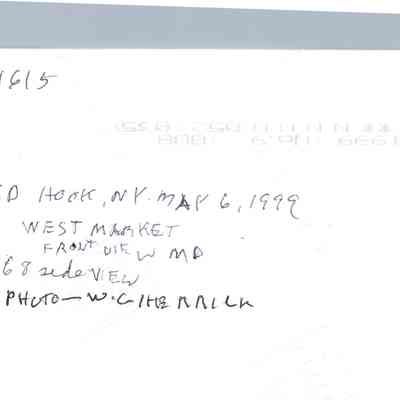 1615
D HOOK, NY. MAY 6, 1999
WEST MARKET
FRONT VIEW MD
68 side VIEW
PHOTO — W. C. HERRICK